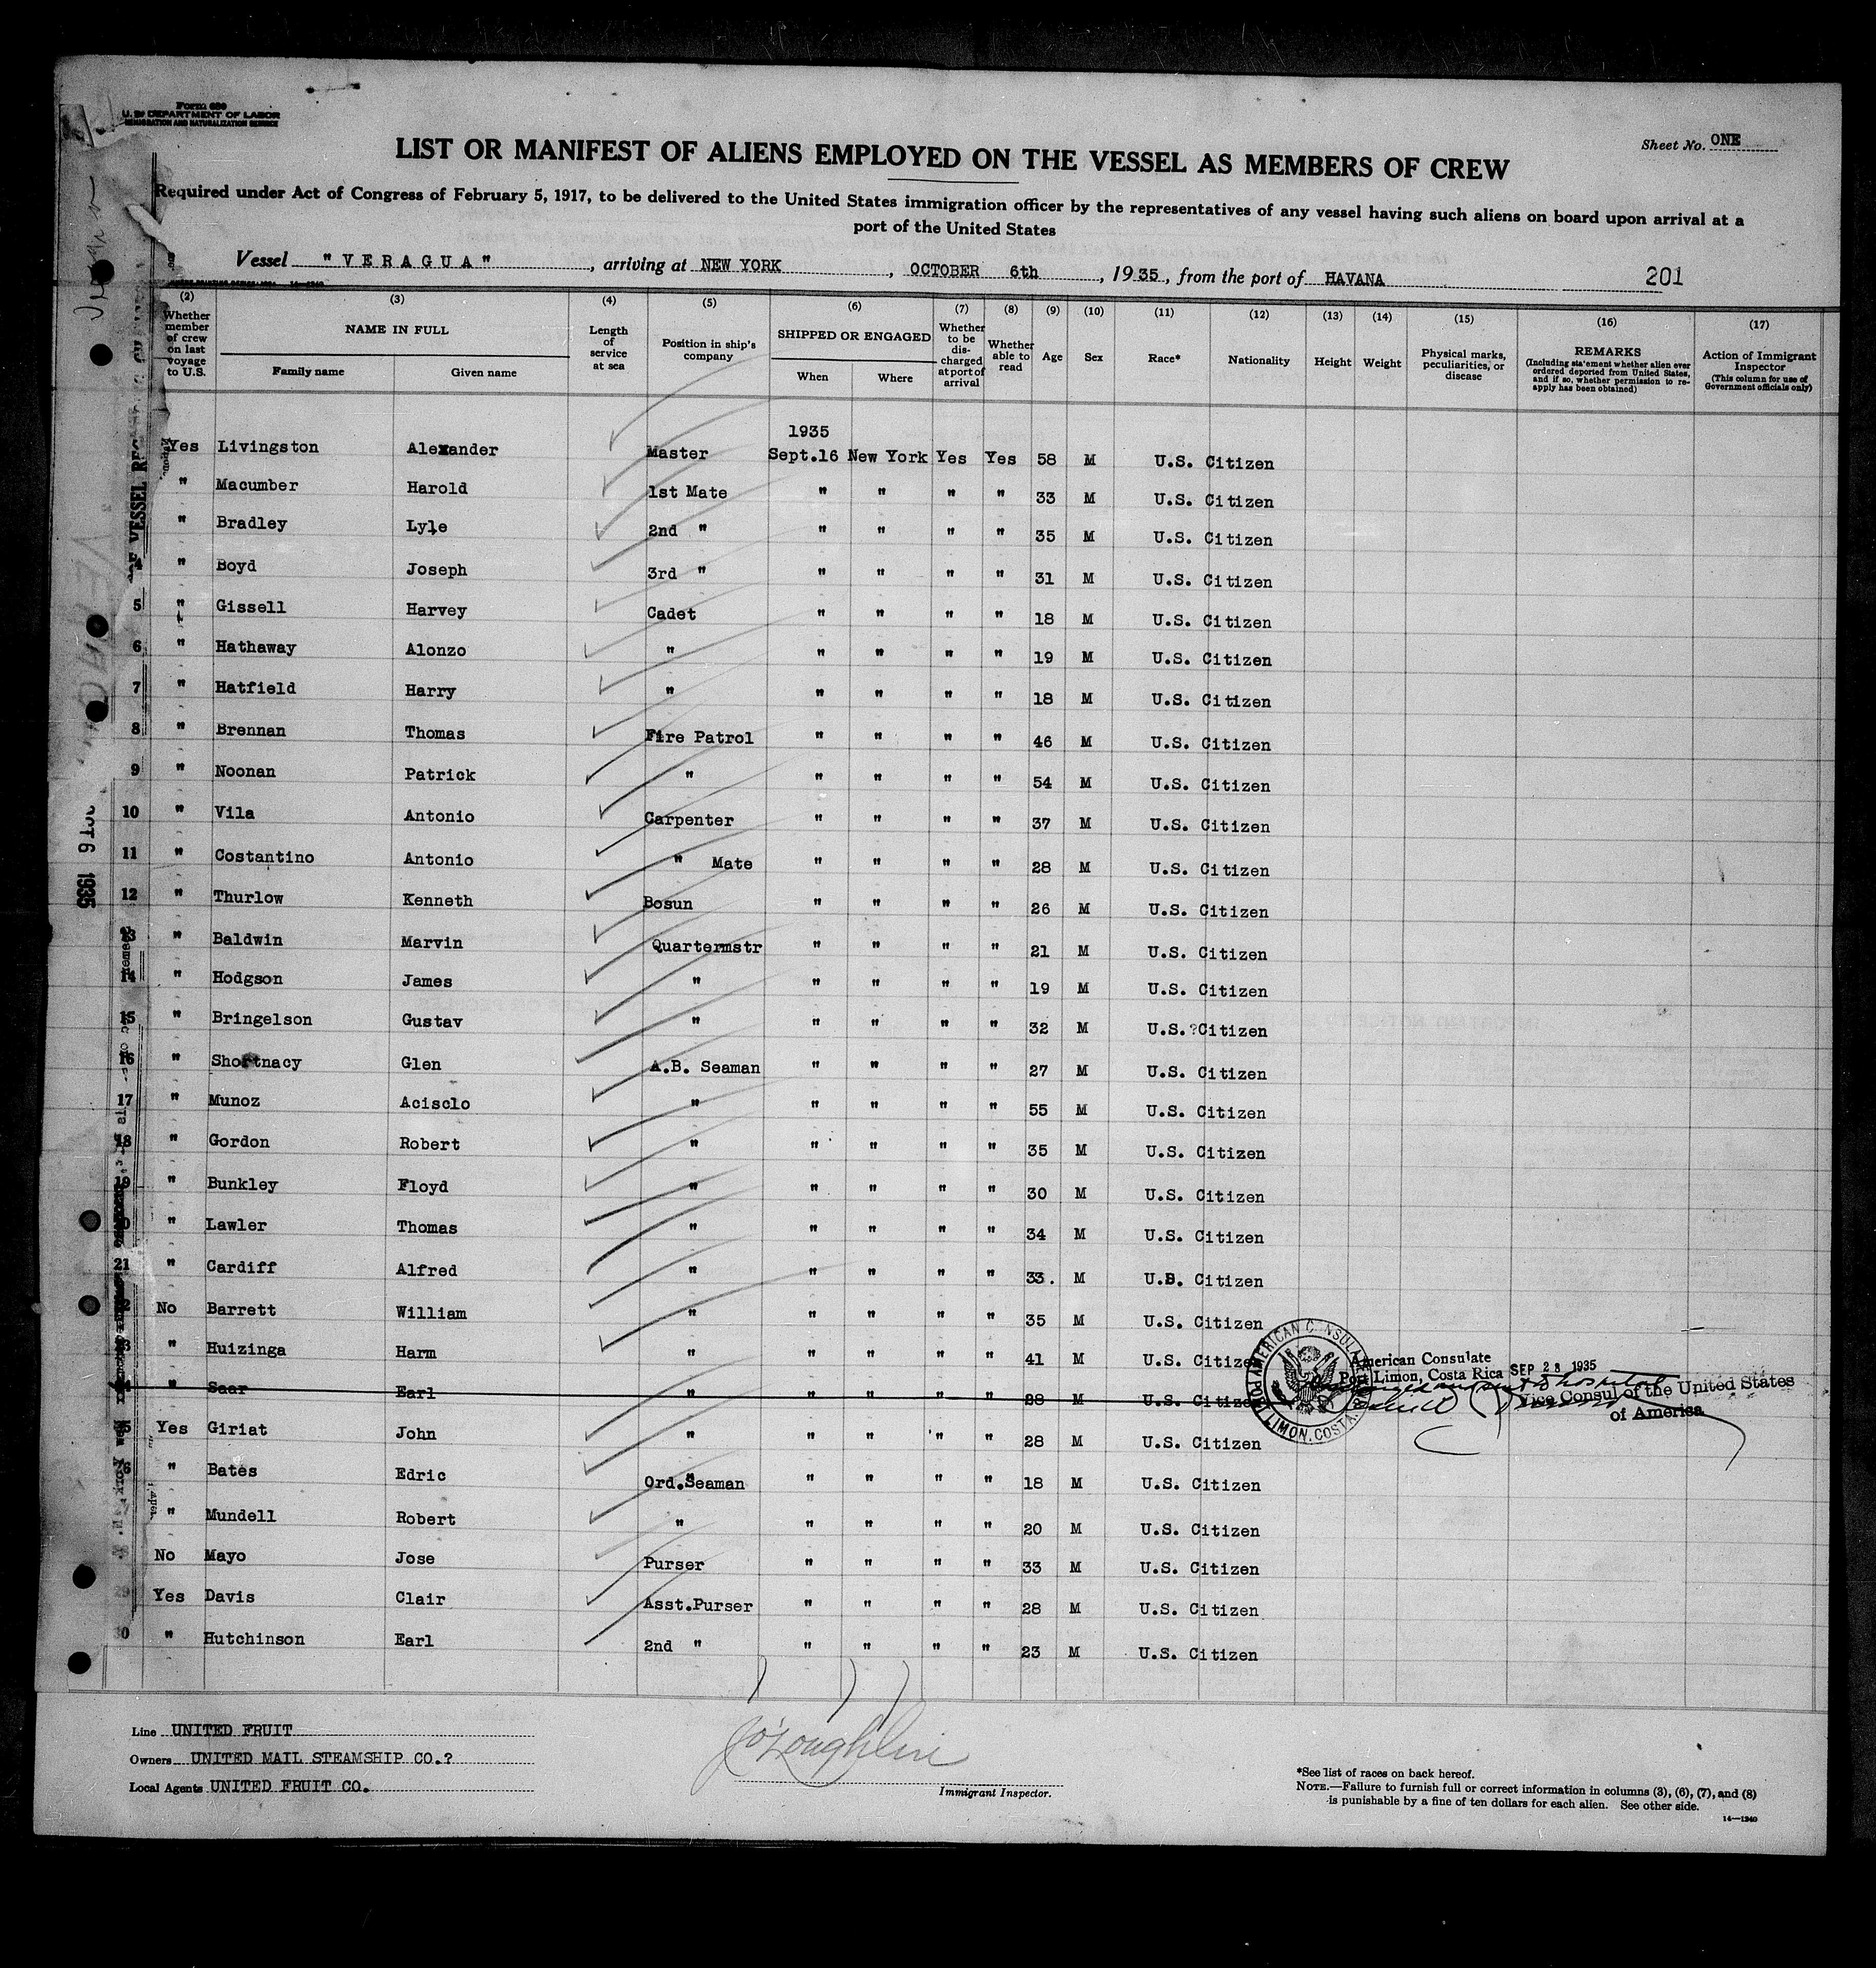 Form 689
U. S. DEPARTMENT OF LABOR
IMMIGRATION AND NATURALIZATION SERVICE
Sheet No. ONE
LIST OR MANIFEST OF ALIENS EMPLOYED ON THE VESSEL AS MEMBERS OF CREW
Required under Act of Congress of February 5, 1917, to be delivered to the United States immigration officer by the representatives of any vessel having such aliens on board upon arrival at a
port of the United States
Vessel "VERAGUA", arriving at NEW YORK, OCTOBER 6th, 1935, from the port of HAVANA 201
(2) (3) (4) (5) (6) (7) (8) (9) (10) (11) (12) (13) (14) (15) (16) (17)
Whether member of crew on last voyage to U.S. NAME IN FULL Family name Given name Length of service at sea Position in ship's company SHIPPED OR ENGAGED When Where Whether to be discharged at port of arrival Whether able to read Age Sex Race* Nationality Height Weight Physical marks, peculiarities, or disease REMARKS (Including statement whether alien ever ordered deported from United States, and if so, whether permission to reapply has been obtained) Action of Immigrant Inspector (This column for use of Government officials only)
1935
Yes Livingston Alexander Master Sept.16 New York Yes Yes 58 M U.S. Citizen
" Macumber Harold 1st Mate " " " " 33 M U.S. Citizen
" Bradley Lyle 2nd " " " " " 35 M U.S. Citizen
" Boyd Joseph 3rd " " " " " 31 M U.S. Citizen
5 " Gissell Harvey Cadet " " " " 18 M U.S. Citizen
6 " Hathaway Alonzo " " " " " 19 M U.S. Citizen
7 " Hatfield Harry " " " " " 18 M U.S. Citizen
8 " Brennan Thomas Fire Patrol " " " " 46 M U.S. Citizen
9 " Noonan Patrick " " " " " 54 M U.S. Citizen
10 " Vila Antonio Carpenter " " " " 37 M U.S. Citizen
11 " Costantino Antonio " Mate " " " " 28 M U.S. Citizen
12 " Thurlow Kenneth Bosun " " " " 26 M U.S. Citizen
13 " Baldwin Marvin Quartermstr " " " " 21 M U.S. Citizen
14 " Hodgson James " " " " " 19 M U.S. Citizen
15 " Bringelson Gustav " " " " " 32 M U.S.?Citizen
16 " Shortnacy Glen A.B. Seaman " " " " 27 M U.S. Citizen
17 " Munoz Acisclo " " " " " 55 M U.S. Citizen
18 " Gordon Robert " " " " " 35 M U.S. Citizen
19 " Bunkley Floyd " " " " " 30 M U.S. Citizen
20 " Lawler Thomas " " " " " 34 M U.S. Citizen
21 " Cardiff Alfred " " " " " 33. M U.S. Citizen
No Barrett William " " " " " 35 M U.S. Citizen
" Huizinga Harm " " " " " 41 M U.S. Citizen
" Saar Earl " " " " " 28 M U.S. Citizen
AMERICAN CONSULATE PORT LIMON, COSTA RICA
American Consulate
Port Limon, Costa Rica SEP 28 1935
hospital
Vice Consul of the United States
of America
Yes Giriat John " " " " " 28 M U.S. Citizen
" Bates Edric Ord.Seaman " " " " 18 M U.S. Citizen
" Mundell Robert " " " " " 20 M U.S. Citizen
No Mayo Jose Purser " " " " 33 M U.S. Citizen
29 Yes Davis Clair Asst.Purser " " " " 28 M U.S. Citizen
30 " Hutchinson Earl 2nd " " " " " 23 M U.S. Citizen
Line UNITED FRUIT
Owners UNITED MAIL STEAMSHIP CO.?
Local Agents UNITED FRUIT CO.
J O'Loughlin
Immigrant Inspector.
*See list of races on back hereof.
NOTE.—Failure to furnish full or correct information in columns (3), (6), (7), and (8)
is punishable by a fine of ten dollars for each alien. See other side.
14—1240
OCT 6 1935